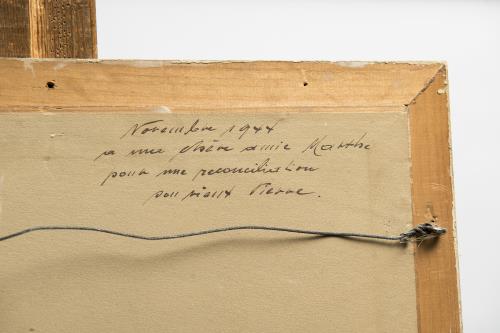 Novembre 1944
a une chère amie Marthe
pour une reconciliation
son vieux Pierre.